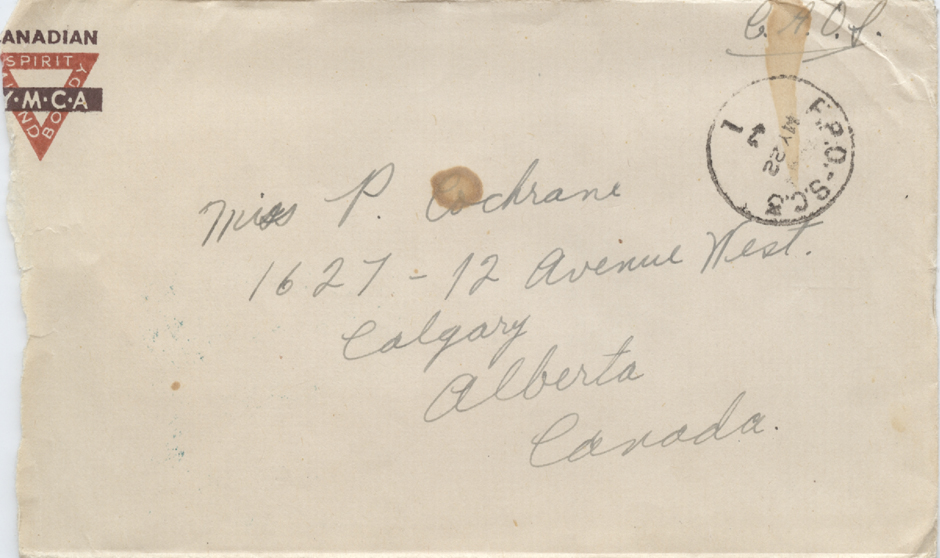 CANADIAN
SPIRIT
MIND
BODY
Y·M·C·A
C.A.O.S.
F.P.O.-S.C.3
MY 22
1
Miss P. Cochrane
1627 - 12 Avenue West.
Calgary
Alberta
Canada.